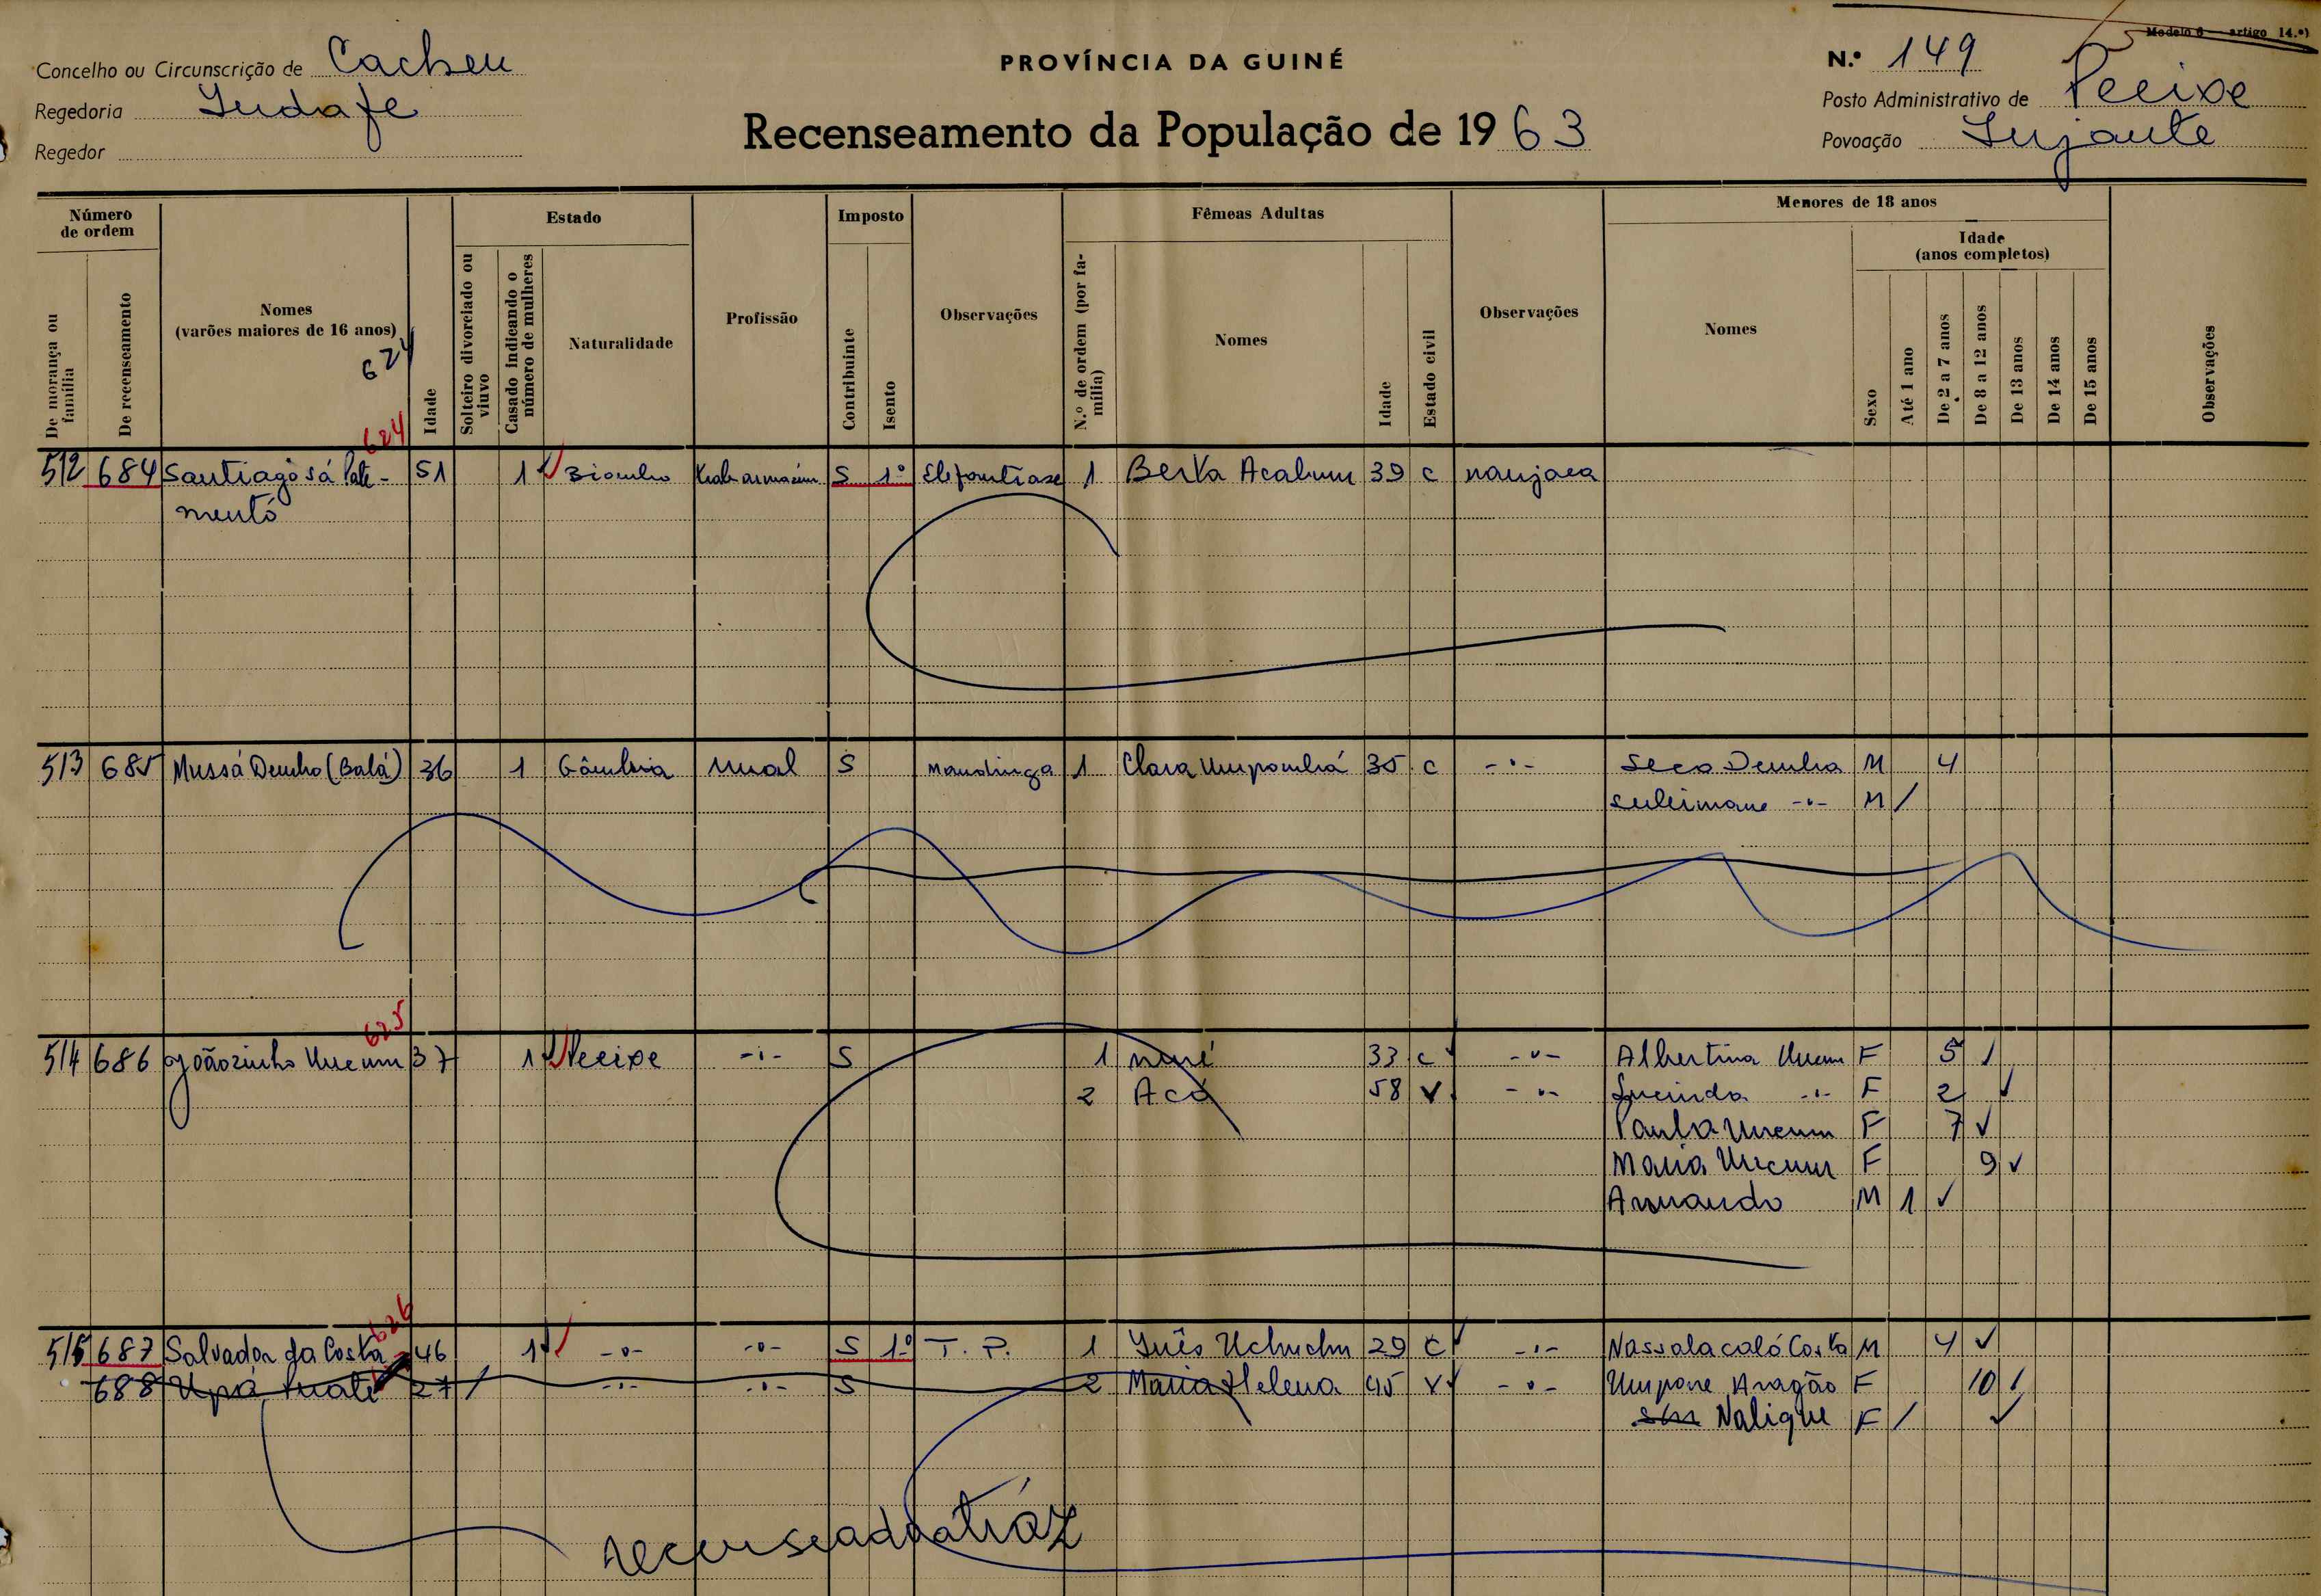 Modelo 6 artigo 14.º)
Concelho ou Circunscrição de Cacheu
PROVÍNCIA DA GUINÉ
N.º 149
Regedoria
Posto Administrativo de Pecixe
Recenseamento da População de 1963
Regedor
Povoação Jujante
Número de ordem
De morança ou família
De recenseamento
Nomes (varões maiores de 16 anos)
624
624
Idade
Estado
Solteiro divorciado ou viuvo
Casado indicando o número de mulheres
Naturalidade
Profissão
Imposto
Contribuinte
Isento
Observações
Fêmeas Adultas
N.º de ordem (por família)
Nomes
Idade
Estado civil
Observações
Menores de 18 anos
Nomes
Sexo
Idade (anos completos)
Até 1 ano
De 2 a 7 anos
De 8 a 12 anos
De 13 anos
De 14 anos
De 15 anos
Observações
512 684 Santiago Sá 51 1 Biombo S 1º Elefantiase 1 Berta Acabum 39 C manjaca
mentó
513 685 Mussá Demba (Balá) 36 1 Gâmbia rural S Mandinga 1 Clara Umpombá 35 C -"- Seco Demba M 4
Suleimane -"- M /
625
514 686 Joãozinho Uncum 37 1 Pecixe -"- S 1 niní 33 C -"- Albertina Uncum F 5
2 Acá 58 V -"- Lucinda -"- F 2
Paula Uncum F 7
Maria Uncum F 9
Armando M 1
626
515 687 Salvador da Costa 46 1 -"- -"- S 1º T. P. 1 Inês Uchuchu 29 C -"- Nassalacaló Costa M 4
688 Upá 27 / -"- -"- S 2 Maria Helena 45 V -"- Umpane Aragão F 10
Nalique F /
recenseado atráz